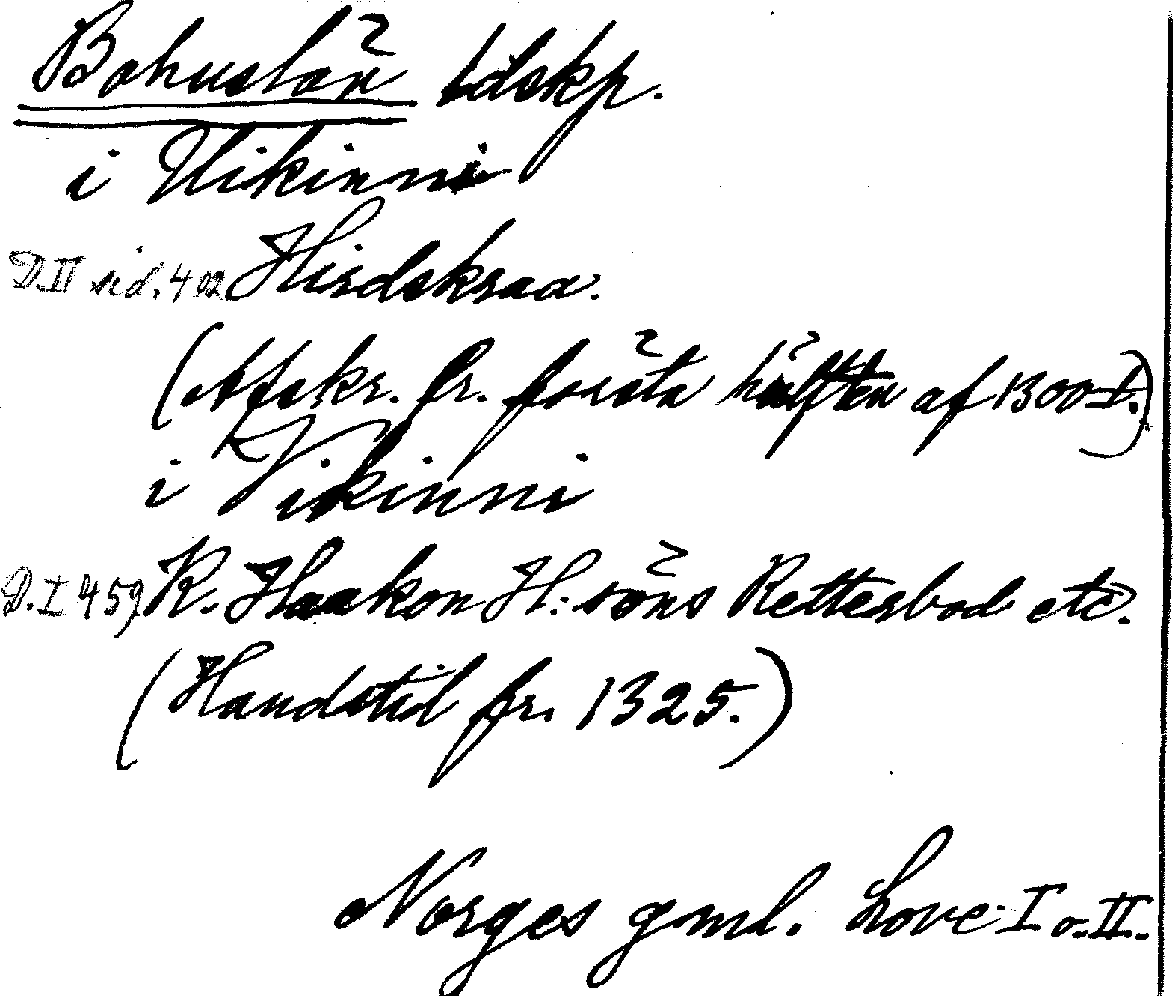 Bohuslän ldskp.
i Vikinni
D. II sid. 402 Hirdskraa.
(Afskr. fr. första hälften af 1300 t.)
i Vikinni
D. I 459 K. Haakon H:söns Retterbod etc.
(Handstil fr. 1325.)
Norges gml. Love I o. II.